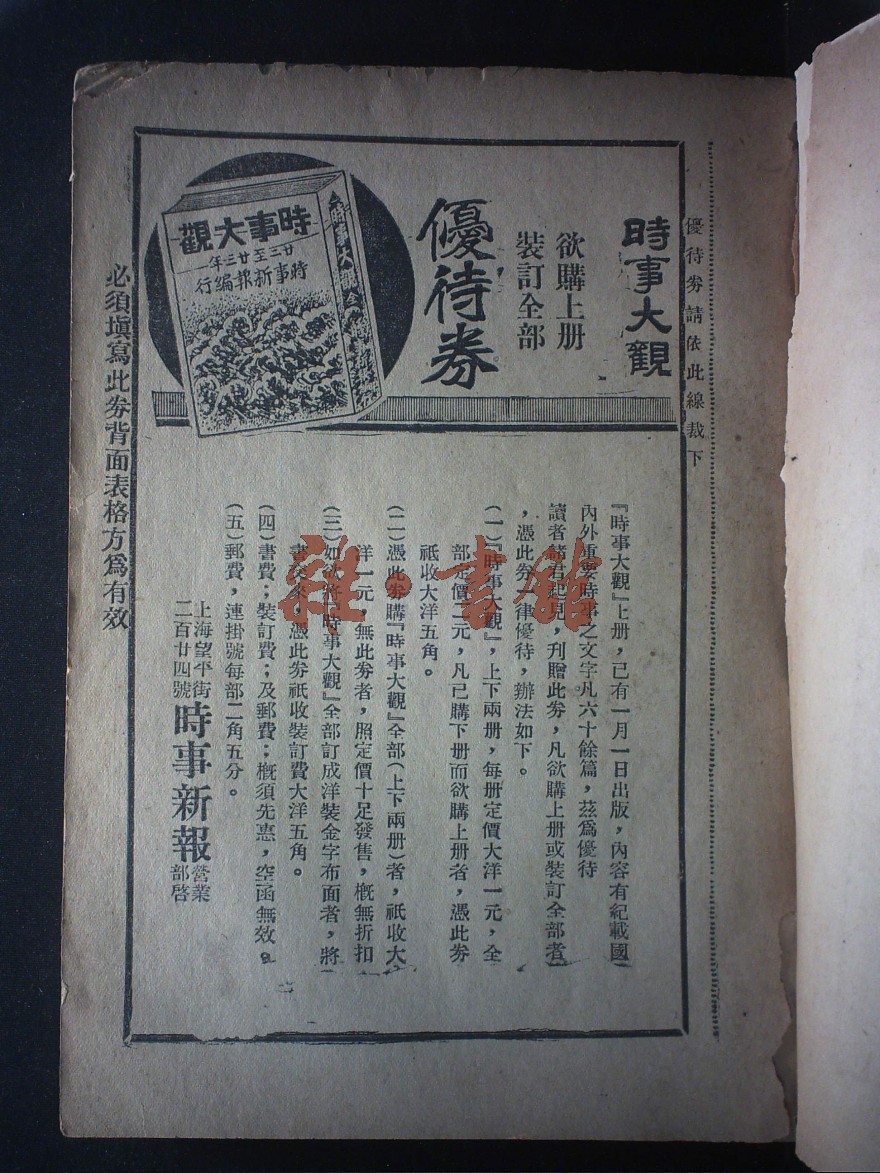 優待劵請依此線裁下
時事大觀
欲購上册
裝訂全部
優待券
時事大觀
廿三至廿三年
時事新報編行
時事大觀全
『時事大觀』上册，已有一月一日出版，內容有紀載國
內外重要時事之文字凡六十餘篇，茲爲優待
讀者諸君起見，刋贈此劵，凡欲購上册或裝訂全部者
，憑此劵一律優待，辦法如下。
(一)『時事大觀』，上下兩册，每册定價大洋一元，全
部定價二元，凡已購下册而欲購上册者，憑此劵
祗收大洋五角。
(二)憑此劵購『時事大觀』全部(上下兩册)者，祗收大
洋一元，無此劵者，照定價十足發售，槪無折扣
(三)如欲將『時事大觀』全部訂成洋裝金字布面者，將
書交來，憑此劵祗收裝訂費大洋五角。
(四)書費；裝訂費；及郵費；槪須先惠，空函無效。
(五)郵費，連掛號每部二角五分。
上海望平街
二百廿四號
時事新報
營業
部啓
必須塡寫此劵背面表格方爲有效
雜·書館